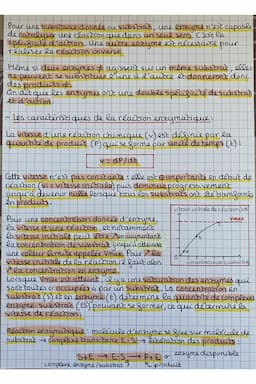 Pour une substance donnée ou substrat, une enzyme n'est capable
de catalyser une réaction que dans un seul sens. C'est la
spécificité d'action. Une autre enzyme est nécessaire pour
réaliser la réaction inverse.
Même si deux enzymes ≠ agissent sur un même substrat, elles
ne peuvent se substituer l'une à l'autre et donneront donc
des produits ≠.
On dit que les enzymes ont une double spécificité de substrat
et d'action.
- Les caractéristiques de la réaction enzymatique:
La vitesse d'une réaction chimique (v) est définie par la
quantité de produit (P) qui se forme par unité de temps (t):
v = dP/dt
Cette vitesse n'est pas constante: elle est importante en début de
réaction (vi = vitesse initiale) puis diminue progressivement
jusqu'à devenir nulle lorsque tous les substrats ont été transformés
en produits.
Pour une concentration donnée d'enzyme,
la vitesse d'une réaction, et notamment
la vitesse initiale peut être ↗ en augmentant
la concentration de substrat jusqu'à atteindre
une valeur limite appelée Vmax. Pour ↗ la
vitesse initiale de la réaction il faut alors
↗ la concentration en enzyme.
Vmax
Lorsque Vmax est atteint, il y a une saturation des enzymes qui
sont toutes "occupées" par un substrat. La concentration en
substrat (S) et en enzyme (E) détermine la quantité de complexe
enzyme-substrat (ES) pouvant se former, ce qui détermine la
vitesse de réaction.
Réaction enzymatique: molécule d'enzyme se fixe sur molécule de
substrat → complexe transitoire E-S → libération des produits
S+E → E-S → P+E → enzyme disponible
complexe enzyme/substrat produit